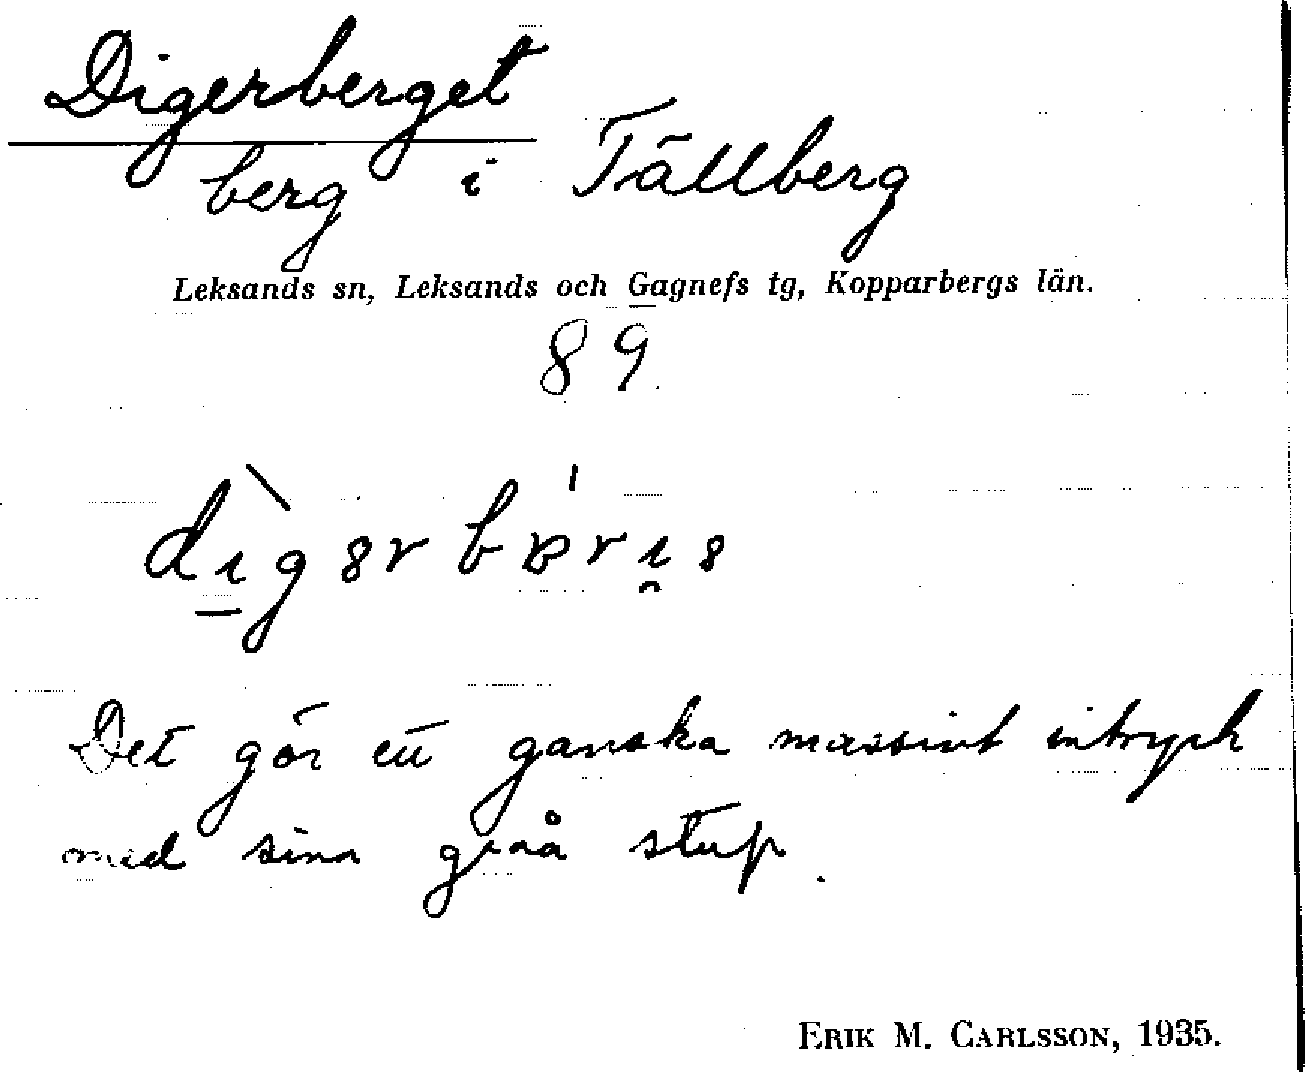 Digerberget
berg i Tällberg
Leksands sn, Leksands och Gagnefs tg, Kopparbergs län.
89
Det gör ett ganska massivt intryck
med sina gråa stup.
ERIK M. CARLSSON, 1935.